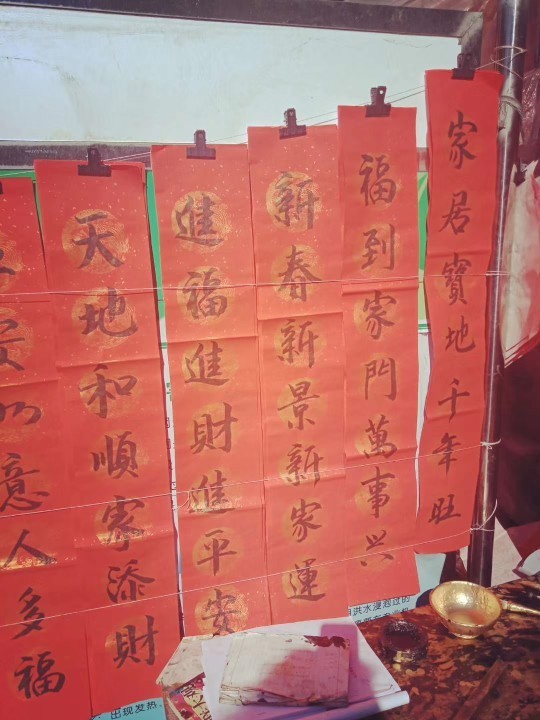 家居寶地千年旺
福到家門萬事兴
新春新景新家運
進福進財進平安
天地和順家添財
安如意人多福
洪水浸泡过的
出现发热